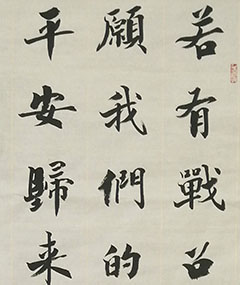 若有戰召
願我們的
平安歸来